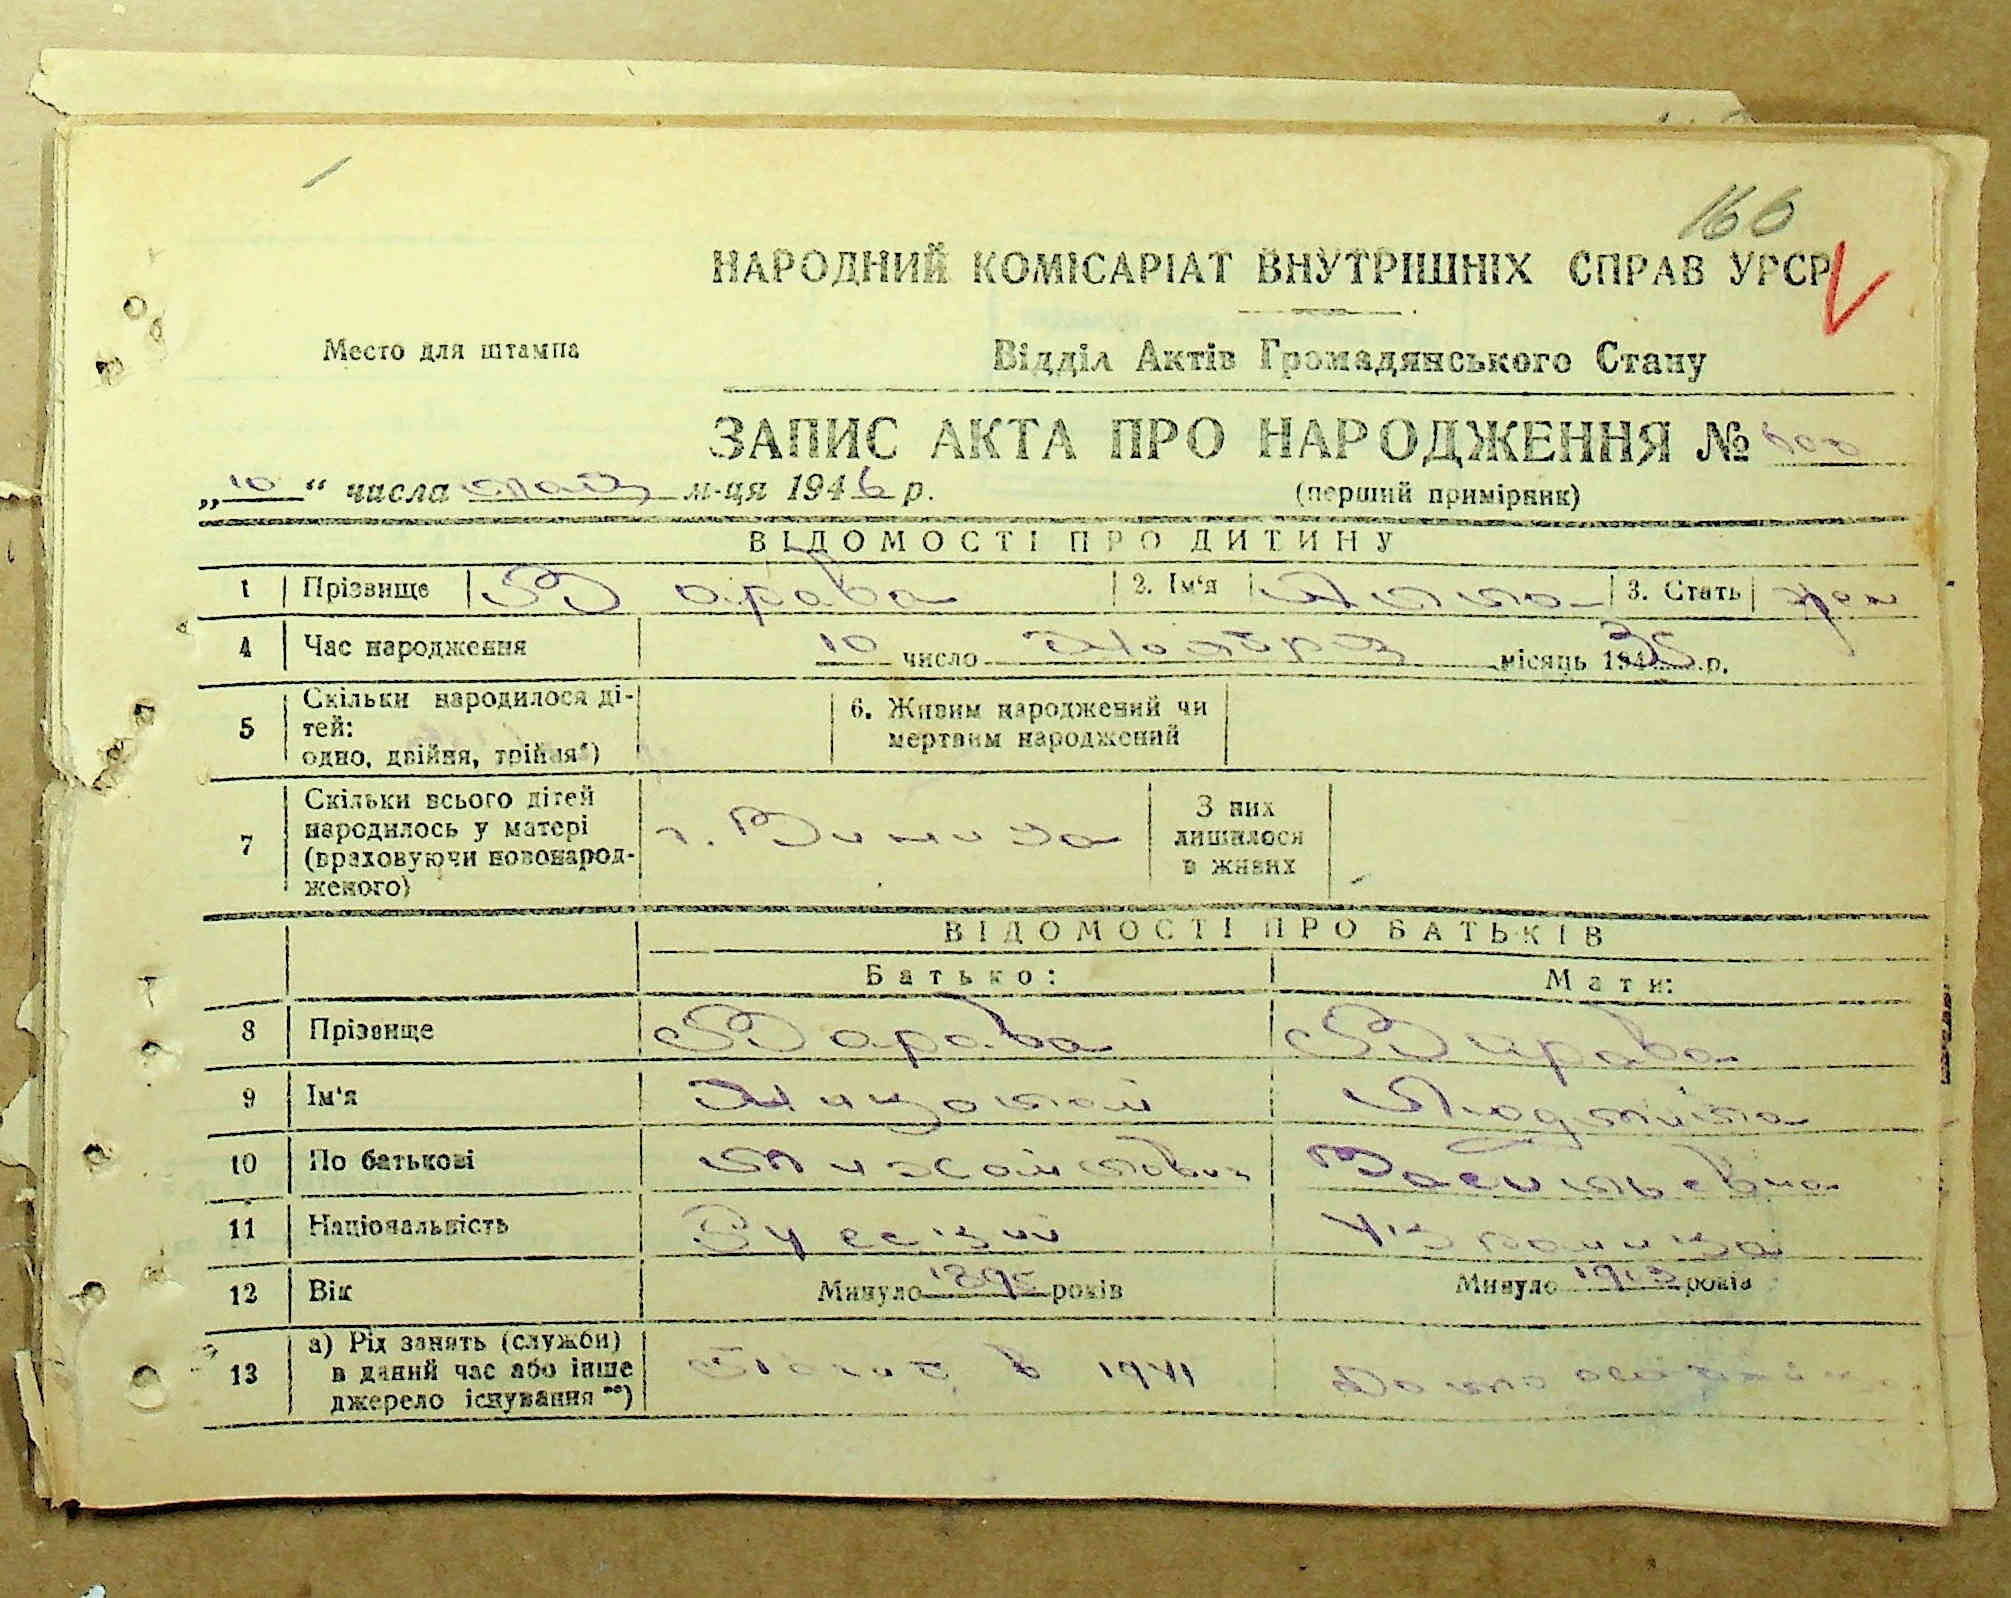 166
НАРОДНИЙ КОМІСАРІАТ ВНУТРІШНІХ СПРАВ УРСР
Место для штампа
Відділ Актів Громадянського Стану
ЗАПИС АКТА ПРО НАРОДЖЕННЯ №
„10“ числа мая м-ця 1946 р.
(перший примірник)
ВІДОМОСТІ ПРО ДИТИНУ
1 Прізвище Варава 2. Ім‘я 3. Стать жен
4 Час народження 10 число Ноября місяць 1935 р.
5 Скільки народилося ді-
тей:
одно, двійня, трійня*)
6. Живим народжений чи
мертвим народжений
7 Скільки всього дітей
народилось у матері
(враховуючи новонарод-
женого)
г. Винница
З них
лишилося
в живих
ВІДОМОСТІ ПРО БАТЬКІВ
Батько: Мати:
8 Прізвище Варава Варава
9 Ім‘я Николай Людмила
10 По батькові Михайлович Васильевна
11 Національність Русский Украинка
12 Вік Минуло 1895 років Минуло 1913 років
13 а) Рід занять (служби)
в даний час або інше
джерело існування **)
в 1941 Домохозяйка